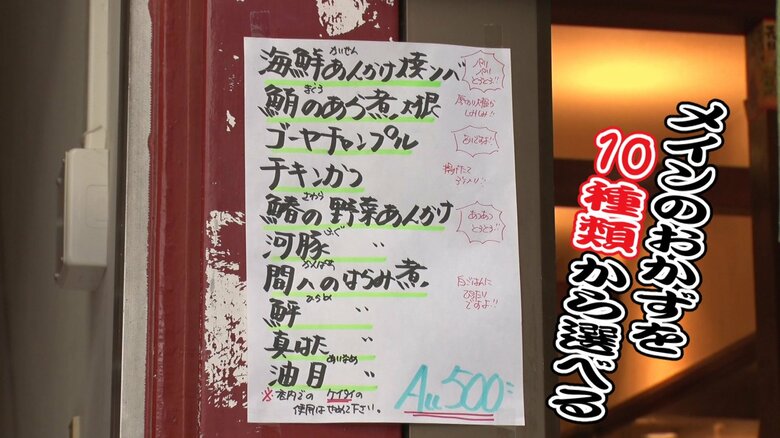 メインのおかずを
10種類から選べる
かいせん
海鮮あんかけ焼ソバ
まぐろ
鮪のあら煮、大根
ゴーヤチャンプル
チキンかつ
さわら
鰆の野菜あんかけ
あつあつ
とろとろ!!
ふぐ
河豚 〃
かんぱち
間八のはらみ煮
白ごはんに
ぴったり
ですよ!!
ひらめ
鮃 〃
真はた 〃
あいなめ
油目 〃
Au500-
※店内での ケイタイの
使用はやめて下さい。